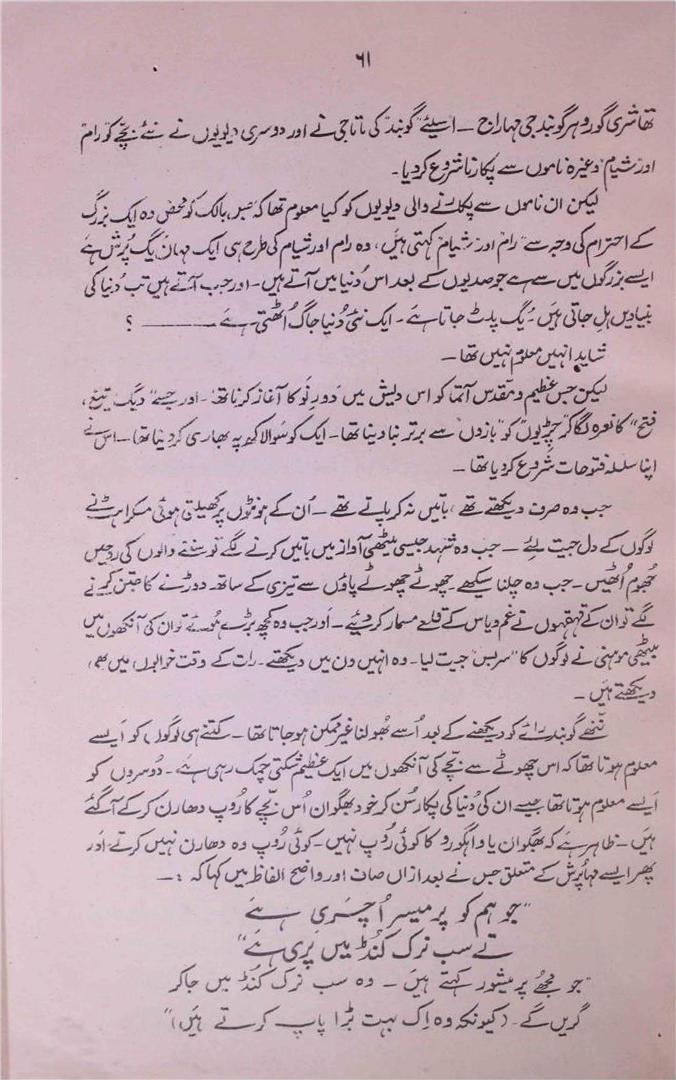 ۶۱
تھا شری گورو ہرگوبند جی مہاراج ۔ اسیلئے گوبند کی ماتا جی نے اور دوسری دیویوں نے ننے بچّے کو رام
اور شیام وغیرہ ناموں سے پکارنا شروع کر دیا ۔
لیکن ان ناموں سے پکارنے والی دیویوں کو کیا معلوم تھا کہ جس بالک کو محض وہ ایک بزرگ
کے احترام کی وجہ سے رام اور شیام کہتی ہیں، وہ رام اور شیام کی طرح ہی ایک مہان یُگ پُرش ہے
ایسے بزرگوں میں سے ہے جو صدیوں کے بعد اس دُنیا میں آتے ہیں ۔ اور جب آتے ہیں تب دُنیا کی
بنیادیں ہل جاتی ہیں ۔ یُگ پلٹ جاتا ہے ۔ ایک نئی دُنیا جاگ اُٹھتی ہے ——— ؟
شاید انہیں معلوم نہیں تھا ۔
لیکن جس عظیم و مقدس آتما کو اس دیش میں دَورِ نَو کا آغاز کرنا تھا ۔ اور جسے "دیگ تیغ،
فتح" کا نعرہ لگا کر چِڑیوں کو بازوں سے برتر بنا دینا تھا ۔ ایک کو سوا لاکھ پہ بھاری کر دینا تھا ۔ اس نے
اپنا سلسلہ فتوحات شروع کر دیا تھا ۔
جب وہ صرف دیکھتے تھے، باتیں نہ کر پاتے تھے ۔ اُن کے ہونٹوں پر کھیلتی ہوئی مسکراہٹ نے
لوگوں کے دل جیت لئے ۔ جب وہ شہد جیسی میٹھی آواز میں باتیں کرنے لگے تو سننے والوں کی روحیں
جُھوم اُٹھیں ۔ جب وہ چلنا سیکھے ۔ چھوٹے چھوٹے پاؤں سے تیزی کے ساتھ دوڑنے کا جتن کرنے
لگے تو ان کے قہقہوں نے غم و یاس کے قلعے مسمار کر دیئے ۔ اور جب وہ کچھ بڑے ہوئے تو ان کی آنکھوں میں
بیٹھی موہنی نے لوگوں کا "سربس" جیت لیا ۔ وہ انہیں دن میں دیکھتے ۔ رات کے وقت خوابوں میں بھی
دیکھتے ہیں ۔
ننّھے گوبند رائے کو دیکھنے کے بعد اُسے بھُولنا غیر ممکن ہو جاتا تھا ۔ کتنے ہی لوگوں کو ایسے
معلوم ہوتا تھا کہ اس چھوٹے سے بچّے کی آنکھوں میں ایک عظیم شکتی چمک رہی ہے ۔ دُوسروں کو
ایسے معلوم ہوتا تھا جیسے ان کی دُنیا کی پکار سُن کر خود بھگوان اُس بچّے کا رُوپ دھارن کر کے آ گئے
ہیں ۔ ظاہر ہے کہ بھگوان یا واہگورو کا کوئی رُوپ نہیں ۔ کوئی رُوپ وہ دھارن نہیں کرتے ۔ اور
پھر ایسے مہاپُرش کے متعلق جس نے بعد ازاں صاف اور واضح الفاظ میں کہا کہ : ۔
"جو ہم کو پرمیسر اُچَری ہے
تے سب نرک کُنڈ میں پَری ہے"
"جو مُجھے پرمیشور کہتے ہیں ۔ وہ سب نرک کُنڈ میں جا کر
گریں گے ۔ (کیونکہ وہ اِک بہت بڑا پاپ کرتے ہیں)"